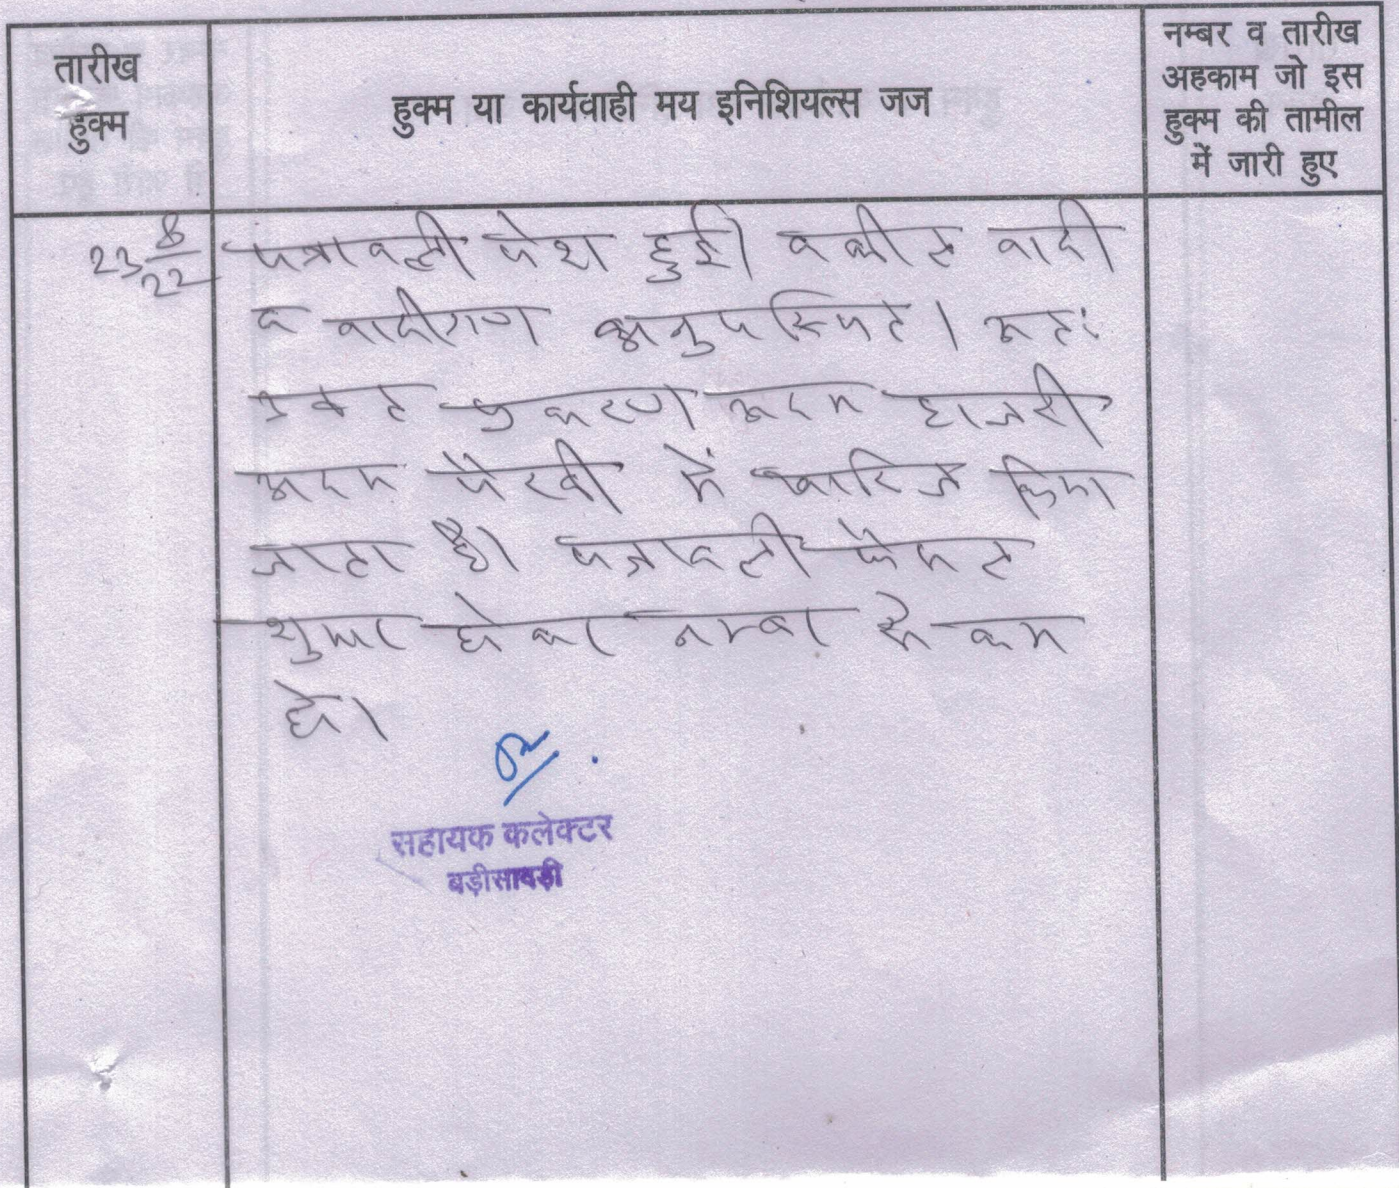 तारीख
हुक्म
हुक्म या कार्यवाही मय इनिशियल्स जज
नम्बर व तारीख
अहकाम जो इस
हुक्म की तामील
में जारी हुए
23/8/22
पत्रावली पेश हुई। वकील वादी
व वादीगण अनुपस्थित। अतः
उक्त प्रकरण अदम हाजरी
अदम पैरवी में खारिज किया
जाता है। पत्रावली फैसल
शुमार होकर नम्बर से कम
हो।
सहायक कलेक्टर
बड़ीसादड़ी